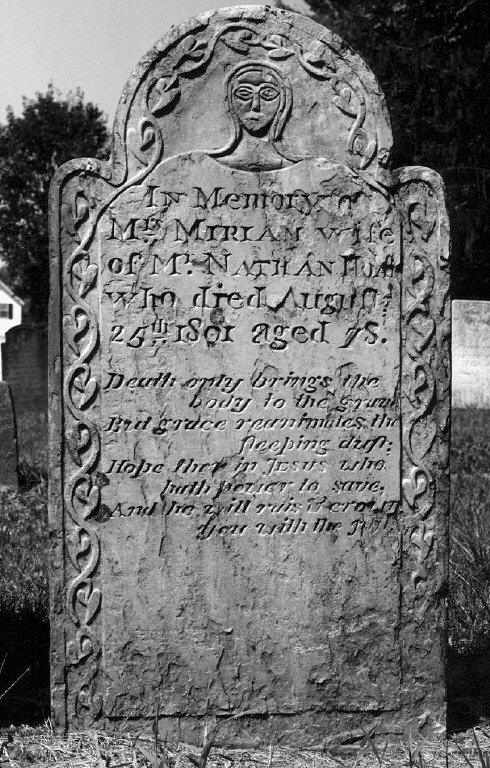 In Memory of
Mrs MIRIAM wife
of Mr. NATHAN
who died August
25th 1801 aged 78.
Death only brings the
body to the grave
But grace reanimates the
sleeping dust;
Hope then in JESUS who
hath power to save,
And he will raise & crown
you with the just.